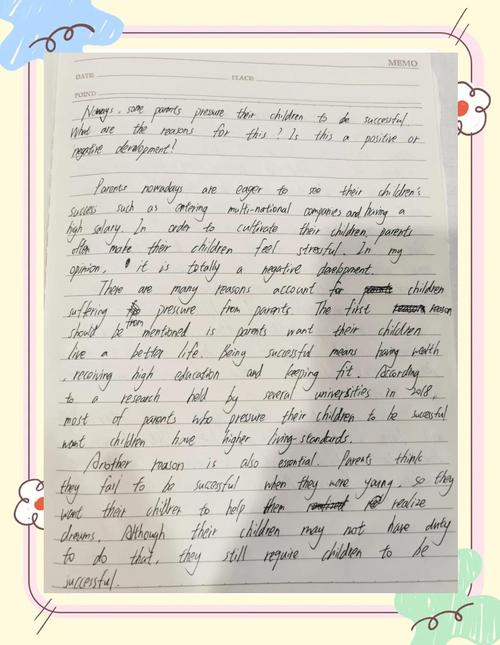 MEMO
DATE:
PLACE:
POINT:
Noways, some parents pressure their children to be successful.
What are the reasons for this? Is this a positive or
negative development?
Parents nowadays are eager to see their children's
success such as entering multi-national companies and having a
high salary. In order to cultivate their children, parents
often make their children feel stressful. In my
opinion, it is totally a negative development.
There are many reasons account for children
suffering from pressure from parents. The first reason
should be mentioned is parents want their children
live a better life. Being successful means having wealth
, receiving high education and keeping fit. According
to a research held by several universities in 2018,
most of parents who pressure their children to be successful
want children have higher living-standards.
Another reason is also essential. Parents think
they fail to be successful when they were young, so they
want their children to help them realize
dreams. Although their children may not have duty
to do that, they still require children to be
successful.